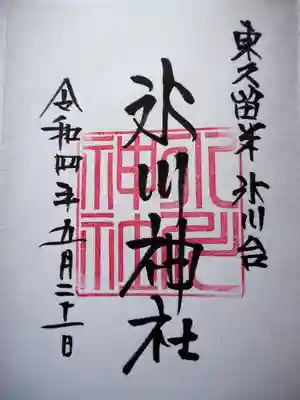 東久留米 氷川台
氷川神社
令和四年五月二十一日